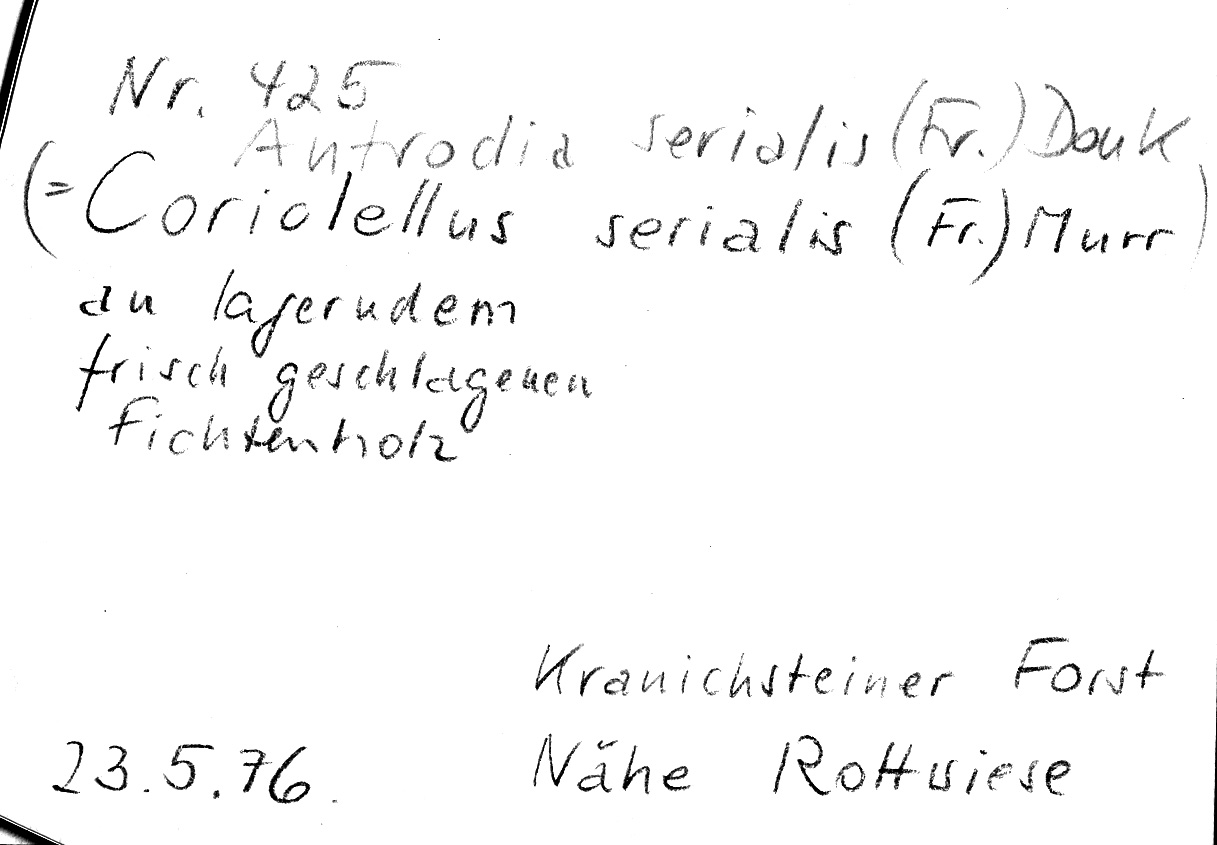 Nr. 425
Antrodia serialis (Fr.) Donk
(= Coriolellus serialis (Fr.) Murr)
an lagerndem
frisch geschlagenen
Fichtenholz
Kranichsteiner Forst
23.5.76. Nähe Rottwiese